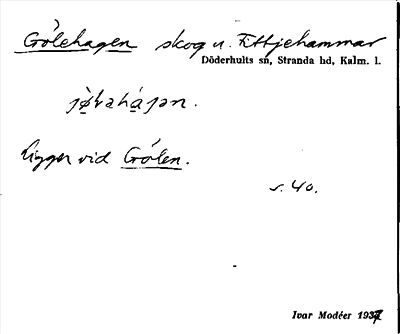 Gölehagen skog u. Fittjehammar
Döderhults sn, Stranda hd, Kalm. l.
ligger vid Gölen.
s. 40.
Ivar Modéer 1937